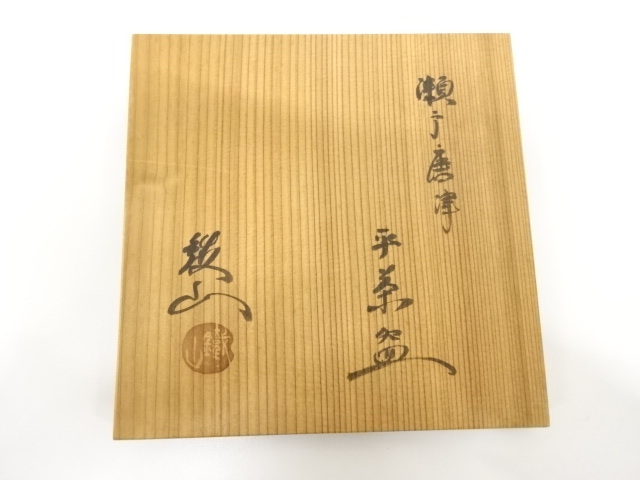 瀬戸唐津
平茶盌
鉄山